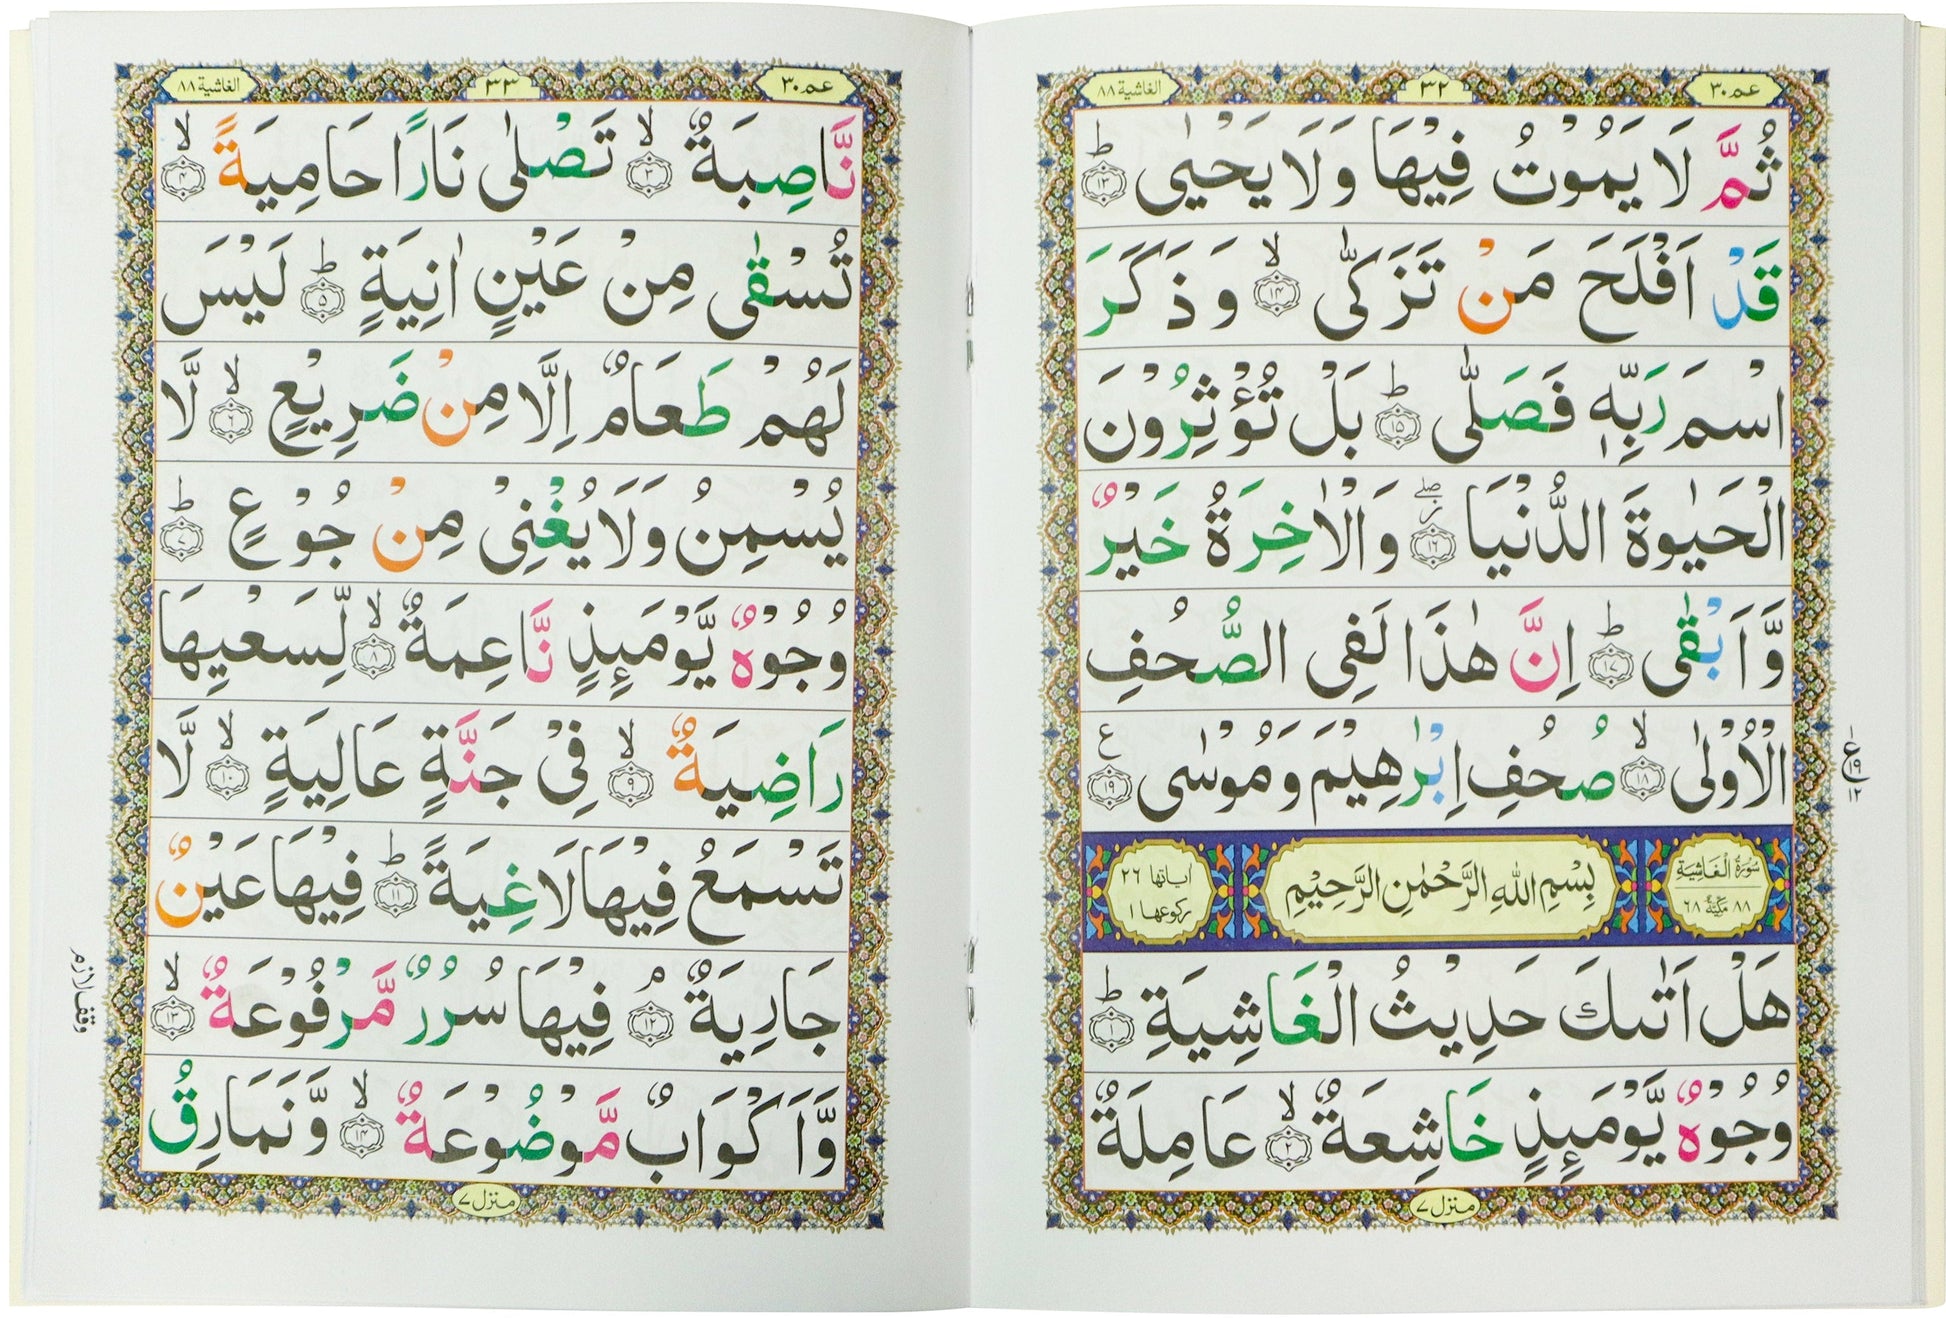 عم ٣٠
٣٢
الغاشية ٨٨
ثُمَّ لَا يَمُوْتُ فِيْهَا وَلَا يَحْيٰى ؕ‏ ١٣
قَدْ اَفْلَحَ مَنْ تَزَكّٰى ۙ‏ ١٤ وَذَكَرَ
اسْمَ رَبِّهٖ فَصَلّٰى ؕ‏ ١٥ بَلْ تُؤْثِرُوْنَ
الْحَيٰوةَ الدُّنْيَا ۖ ز ١٦ وَالْاٰخِرَةُ خَيْرٌ
وَّاَبْقٰى ؕ‏ ١٧ اِنَّ هٰذَا لَفِى الصُّحُفِ
الْاُوْلٰى ۙ‏ ١٨ صُحُفِ اِبْرٰهِيْمَ وَمُوْسٰى ع ١٩
١ ع ١٩ ١٢
سورة الغاشية ٨٨ مكية ٦٨
بِسْمِ اللهِ الرَّحْمٰنِ الرَّحِيْمِ
اياتها ٢٦ ركوعها ١
هَلْ اَتٰىكَ حَدِيْثُ الْغَاشِيَةِ ؕ‏ ١
وُجُوْهٌ يَّوْمَئِذٍ خَاشِعَةٌ ۙ‏ ٢ عَامِلَةٌ
منزل ٧
عم ٣٠
٣٣
الغاشية ٨٨
نَّاصِبَةٌ ۙ‏ ٣ تَصْلٰى نَارًا حَامِيَةً ۙ‏ ٤
تُسْقٰى مِنْ عَيْنٍ اٰنِيَةٍ ؕ‏ ٥ لَيْسَ
لَهُمْ طَعَامٌ اِلَّا مِنْ ضَرِيْعٍ ۙ‏ ٦ لَّا
يُسْمِنُ وَلَا يُغْنِىْ مِنْ جُوْعٍ ؕ‏ ٧
وُجُوْهٌ يَّوْمَئِذٍ نَّاعِمَةٌ ۙ‏ ٨ لِّسَعْيِهَا
رَاضِيَةٌ ۙ‏ ٩ فِىْ جَنَّةٍ عَالِيَةٍ ۙ‏ ١٠ لَّا
تَسْمَعُ فِيْهَا لَاغِيَةً ؕ‏ ١١ فِيْهَا عَيْنٌ
جَارِيَةٌ ۘ‏ ١٢ فِيْهَا سُرُرٌ مَّرْفُوْعَةٌ ۙ‏ ١٣
وقف لازم
وَّاَكْوَابٌ مَّوْضُوْعَةٌ ۙ‏ ١٤ وَّنَمَارِقُ
منزل ٧